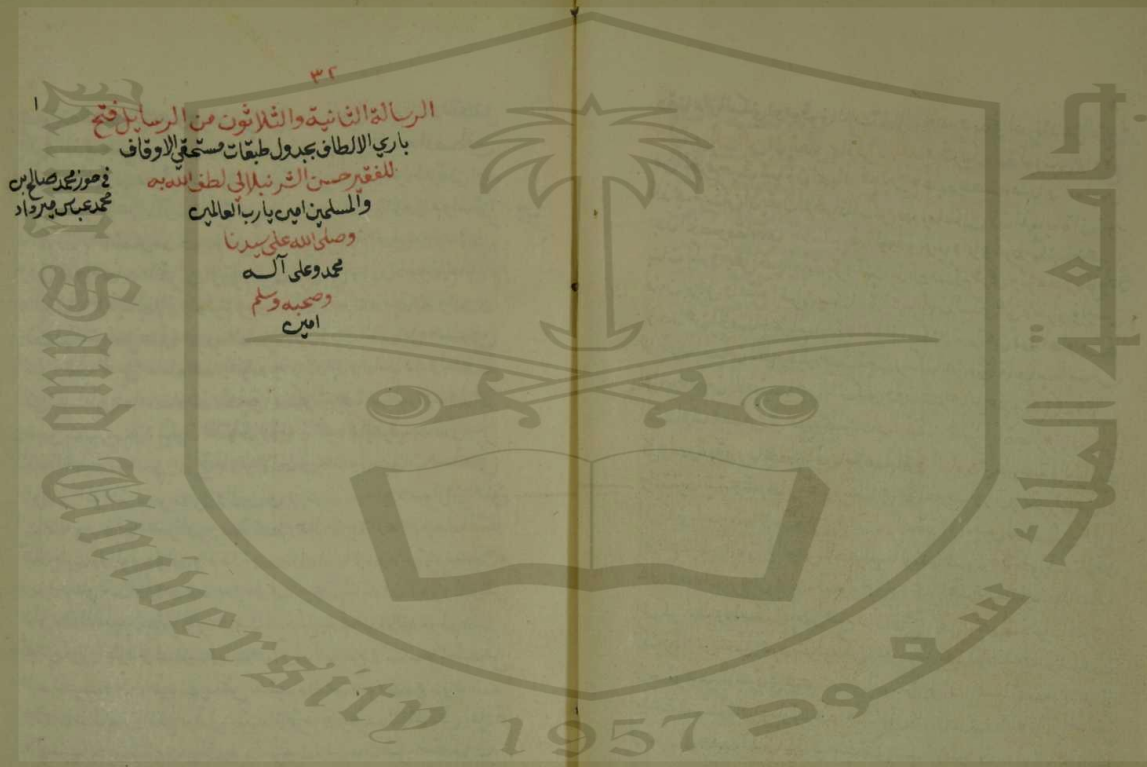 ٣٢
١
الرسالة الثانية والثلاثون من الرسايل فتح
باري الالطاف بجدول طبقات مستحقي الاوقاف
للفقير حسن الشرنبلالي لطف الله به
والمسلمين امين يارب العالمين
وصلى الله على سيدنا
محمد وعلى آله
وصحبه وسلم
امين
في حوز محمد صالح بن
محمد عباس ميرداد
جامعة الملك سعود
King Saud University 1957